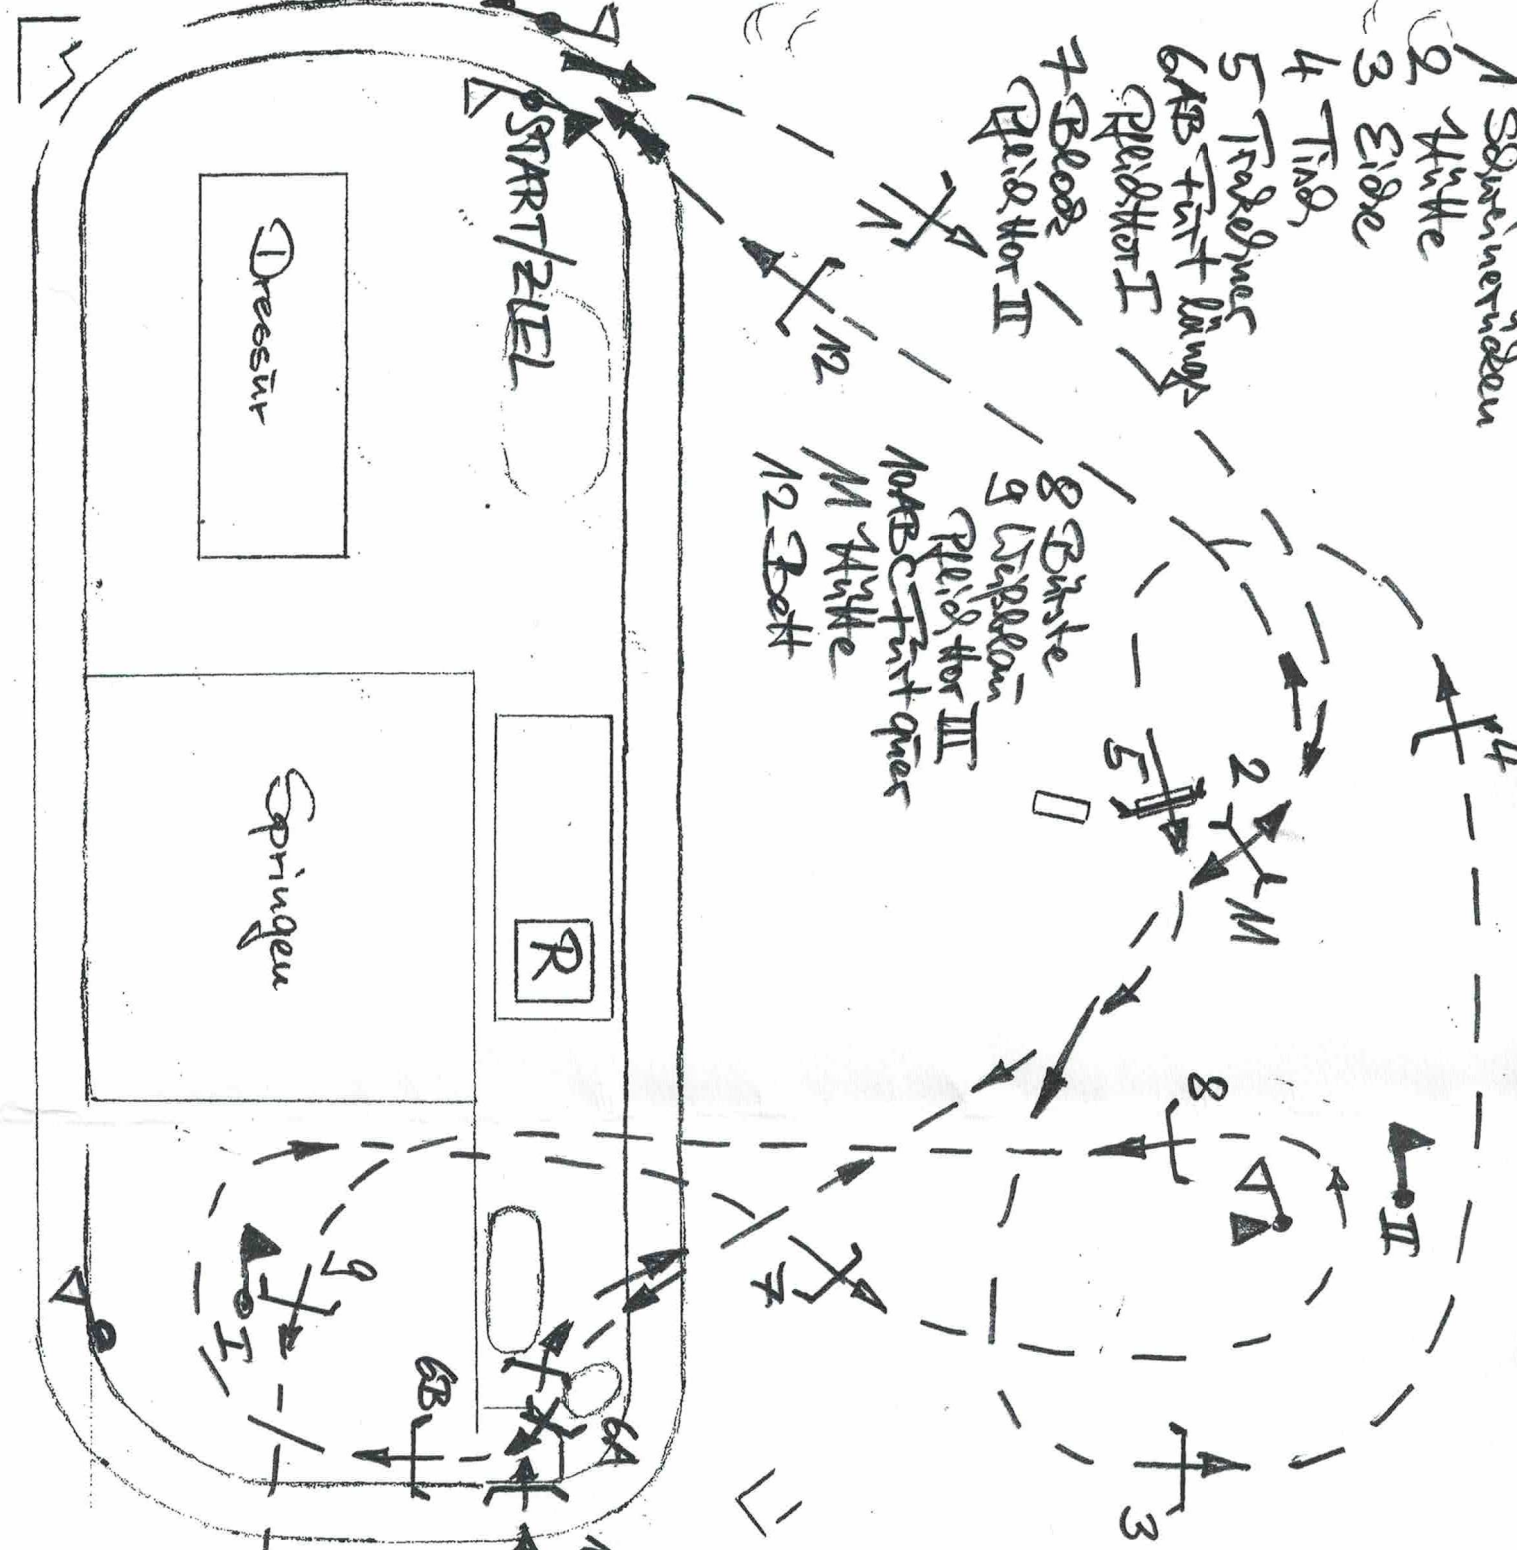 1 Schweinerücken
2 Hütte
3 Eiche
4 Tisch
5 Trakehner
6AB Furt längs
Pflichttor I
7 Block
Pflichttor II
8 Bürste
9
Pflichttor III
10ABC Furt quer
11 Hütte
12 Bett
1
12
4
2
11
5
START/ZIEL
Dressur
Springen
R
8
II
7
3
9
I
6B
6A